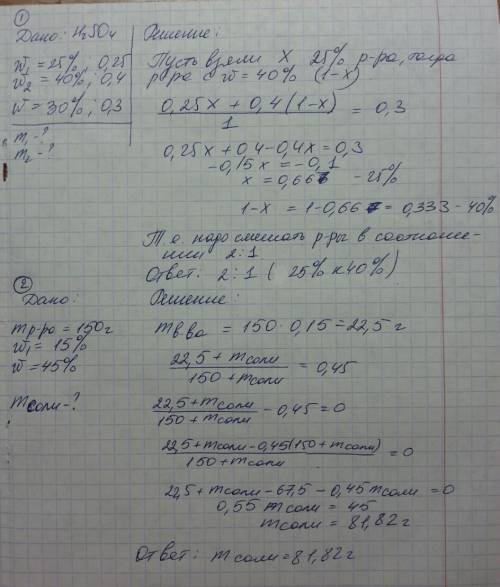 ①
Дано: H₂SO₄
Решение:
w̄₁ = 25%, 0,25
w̄₂ = 40%; 0,4
w̄ = 30%; 0,3
m₁ - ?
m₂ - ?
Пусть взяли X 25% р-ра, тогда
р-ра с w̄ = 40% (1-x)
0,25x + 0,4(1-x)
1
= 0,3
0,25x + 0,4 - 0,4x = 0,3
-0,15x = -0,1
x = 0,667 - 25%
1-x = 1-0,667 = 0,333 - 40%
Т.е. надо смешать р-ры в соотноше-
нии 2:1
Ответ: 2:1 (25% к 40%)
②
Дано:
Решение:
m р-ра = 150г
w̄₁ = 15%
w̄ = 45%
m соли - ?
m в-ва = 150 · 0,15 = 22,5 г
22,5 + m соли
150 + m соли
= 0,45
22,5 + m соли
150 + m соли
- 0,45 = 0
22,5 + m соли - 0,45(150 + m соли)
150 + m соли
= 0
22,5 + m соли - 67,5 - 0,45 m соли = 0
0,55 m соли = 45
m соли = 81,82 г
Ответ: m соли = 81,82 г